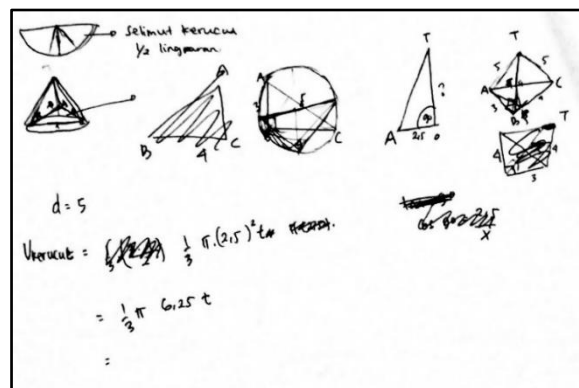 selimut kerucut
1/2 lingkaran
A
B
4
C
A
3
5
C
T
?
A
2,5
90
0
T
5
5
A
C
3
4
B
T
4
4
3
d = 5
Vkerucut = 1/3 π.(2,5)² t
= 1/3 π 6,25 t
=
x